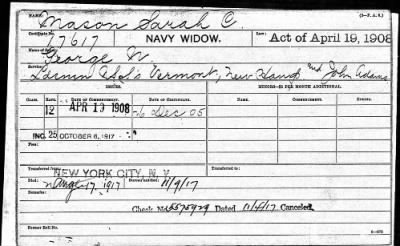 (3-F.A.S.)
Name, Mason Sarah C.
Certificate No. 17617 NAVY WIDOW. Law: Act of April 19, 1908
Name of Sailor, George W.
Service: Vermont, New Hamp and John Adams
ISSUES. MINORS—$2 PER MONTH ADDITIONAL.
CLASS. RATE. DATE OF COMMENCEMENT. DATE OF CERTIFICATE. DATE OF COMMENCEMENT.
12 APR 19 1908 Dec 08
INC. 25 OCTOBER 6, 1917
Transferred from Transferred to
NEW YORK CITY, N. Y.
Died, Aug 17, 1917 Bureau notified, 11/9/17
Check No. 5575929 Dated 11/4/17 Canceled
Former Roll No.